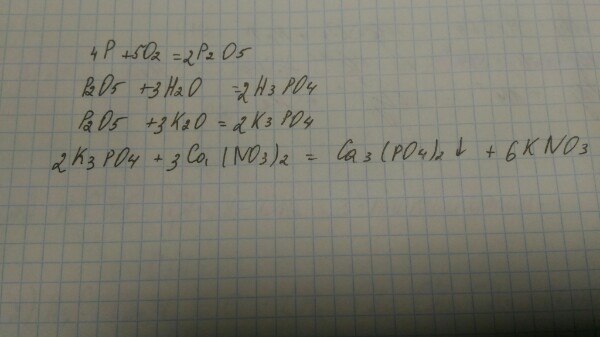 4P + 5O2 = 2P2O5
P2O5 + 3H2O = 2H3PO4
P2O5 + 3K2O = 2K3PO4
2K3PO4 + 3Ca(NO3)2 = Ca3(PO4)2↓ + 6KNO3